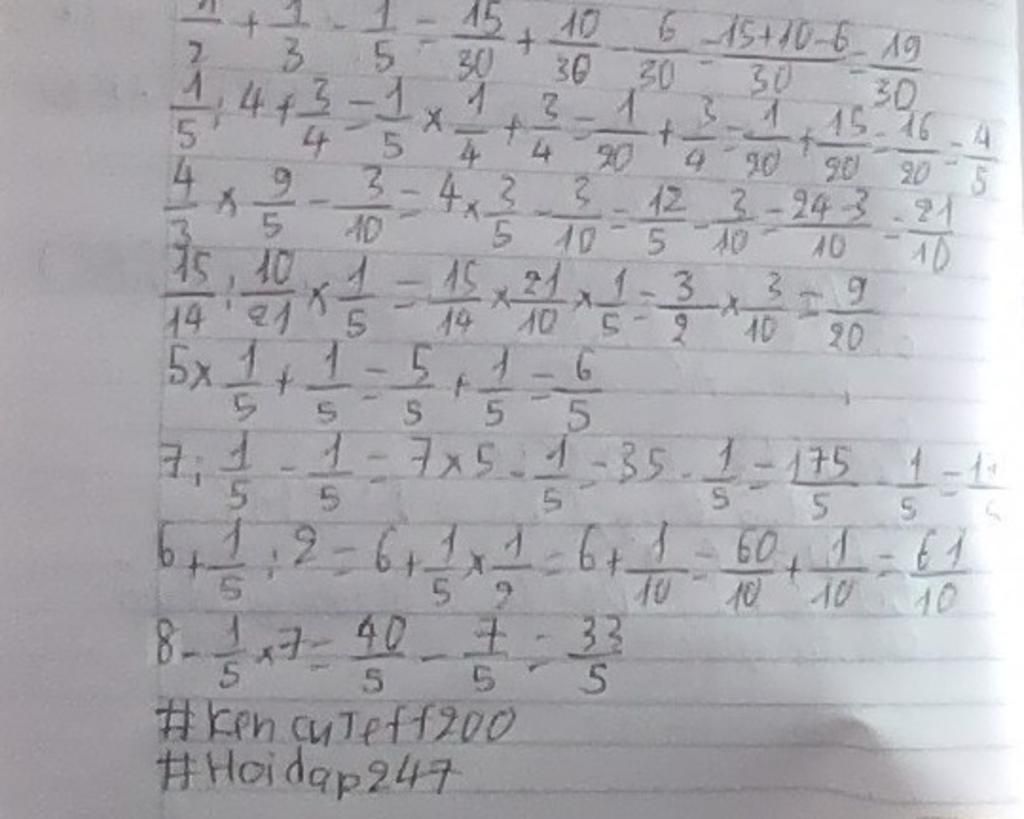 1/2 + 1/3 - 1/5 = 15/30 + 10/30 - 6/30 = 15+10-6/30 = 19/30
1/5 : 4 + 3/4 = 1/5 × 1/4 + 3/4 = 1/20 + 3/4 = 1/20 + 15/20 = 16/20 = 4/5
4/3 × 9/5 - 3/10 = 4 × 3/5 - 3/10 = 12/5 - 3/10 = 24-3/10 = 21/10
15/14 : 10/21 × 1/5 = 15/14 × 21/10 × 1/5 = 3/2 × 3/10 = 9/20
5 × 1/5 + 1/5 = 5/5 + 1/5 = 6/5
7 : 1/5 - 1/5 = 7 × 5 - 1/5 = 35 - 1/5 = 175/5 - 1/5 =
6 + 1/5 : 2 = 6 + 1/5 × 1/2 = 6 + 1/10 = 60/10 + 1/10 = 61/10
8 - 1/5 × 7 = 40/5 - 7/5 = 33/5
#KencuTeff200
#Hoidap247